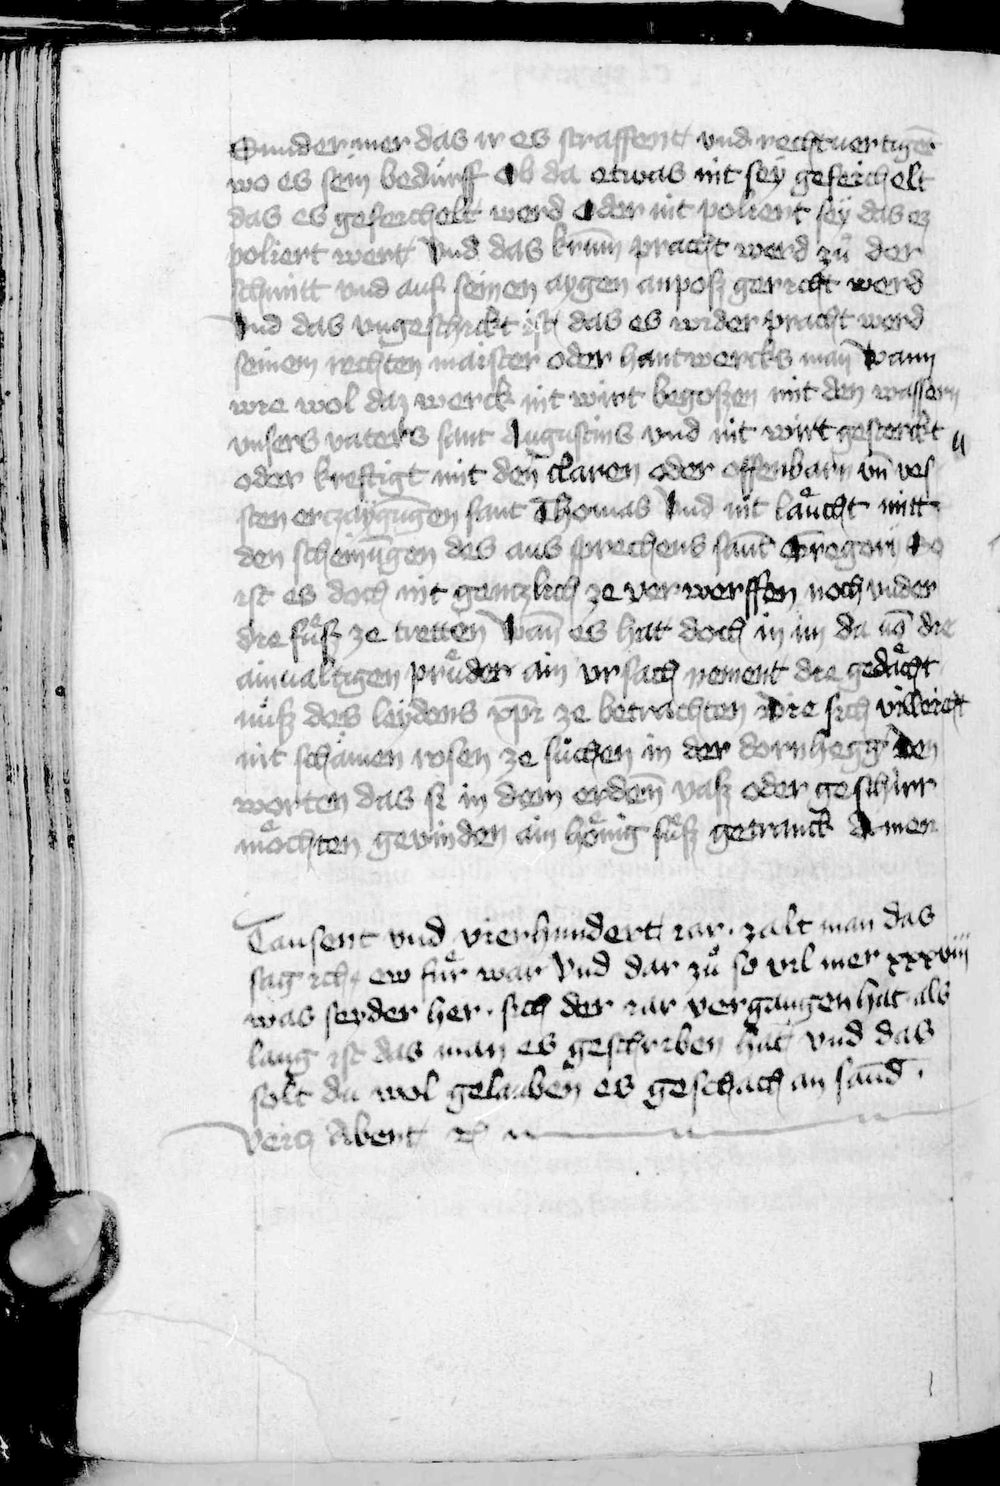 Sunder mer das ir es straffent vnd rechtuertigēt
wo es sein bedürff Ob da etwas nit sey gefeichelt
das es gefeichelt werd Oder nit poliert sey das ez
poliert wert Vnd das krum̄ pracht werd zů der
schnitt vnd auf seinen aygen anposz gericht werd
Vnd das vngeschickt ist das es wider pracht werd
seinem rechten maister oder hantwercks man Wann
wie wol daz werck nit wirt begoszen mit den wassern
vnsers vaters sant Augustins vnd nit wirt gesterckt
oder kreftigt mit den̄ claren oder offenbarn vn̄ ves
sten erczaygūgen sant Thomas Vnd nit laͤucht mitt
den scheinūgen des aus sprechens sant̄ Gregorij So
ist es doch nit gentzlich ze verwerffen noch vnder
die fuͤsz ze tretten Wan̄ es hat doch in im da uō die
ainualtigen pruͤder ain vrsach nement die gedaͤcht
nuͤsz des leydens xp̄i ze betrachten Die sich villeicht
nit schämen rosen ze suͤchen in der dornhegg Den
worten das si in dem erden̄ vasz oder geschirr
moͤchten gevinden ain hoͤnig suͤsz getranck Amen
Tausent vnd vierhundert iar · zalt man das
sag ich ew fuͤr war Vnd dar zů so vil mer xxxviii
was seyder her · sich der iar vergangen hat als
lang ist das man es geschriben hat Vnd das
solt du wol gelauben es geschach an sand ·
Veitz Abent